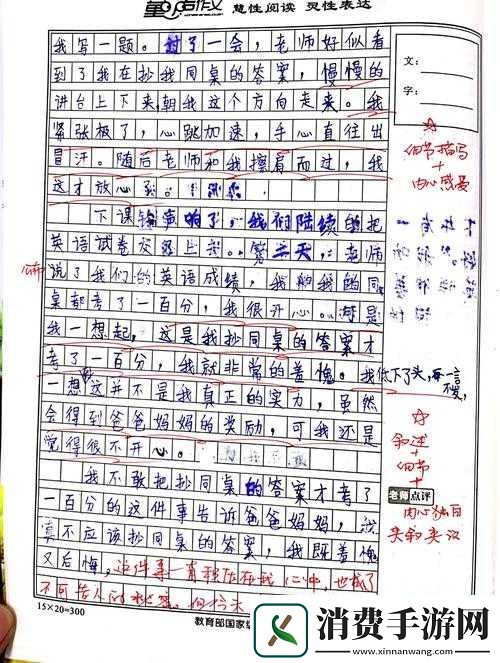 童话作文 慧性阅读 灵性表达
我写一题。过了一会，老师好似看
到了我在抄我同桌的答案，慢慢的
讲台上下来，朝我这个方向走来。我
紧张极了，心跳加速，手心直往出
冒汗。随后老师和我擦肩而过，我
这才放心了。
下课铃声响了，我们陆续的把
英语试卷交了上去。第二天，老师
公布
说了我们的英语成绩，我和我的同
桌都考了一百分，我很开心。
我一想起，这是我抄同桌的答案才
考了一百分，我就非常的羞愧。我低下了头，每一
一想这并不是我真正的实力，虽然
会得到爸爸妈妈的奖励，可我还是
觉得很不开心。
我不敢把抄同桌的答案才考了
一百分的这件事告诉爸爸妈妈，
真不应该抄同桌的答案，我既羞愧
又后悔，这件事一直积压在我心中，也成了
不可告人的秘密
15×20=300
教育部国家
文：
字：
细节描写
+
内心感受
叙述
+
细节
+
内心独白
老师点评
消费手游网
www.xinnanwang.com